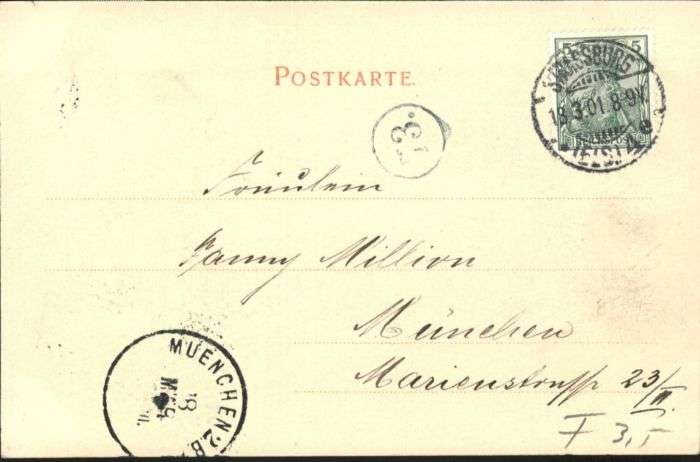 POSTKARTE.
5 5
STRASSBURG
18.3.01.8-9V.
(ELS) 4 e
73.
Fräulein
Fanny Million
München
Marienstraße 23/II.
F 3,-
MUENCHEN 2.B.
18
MRZ